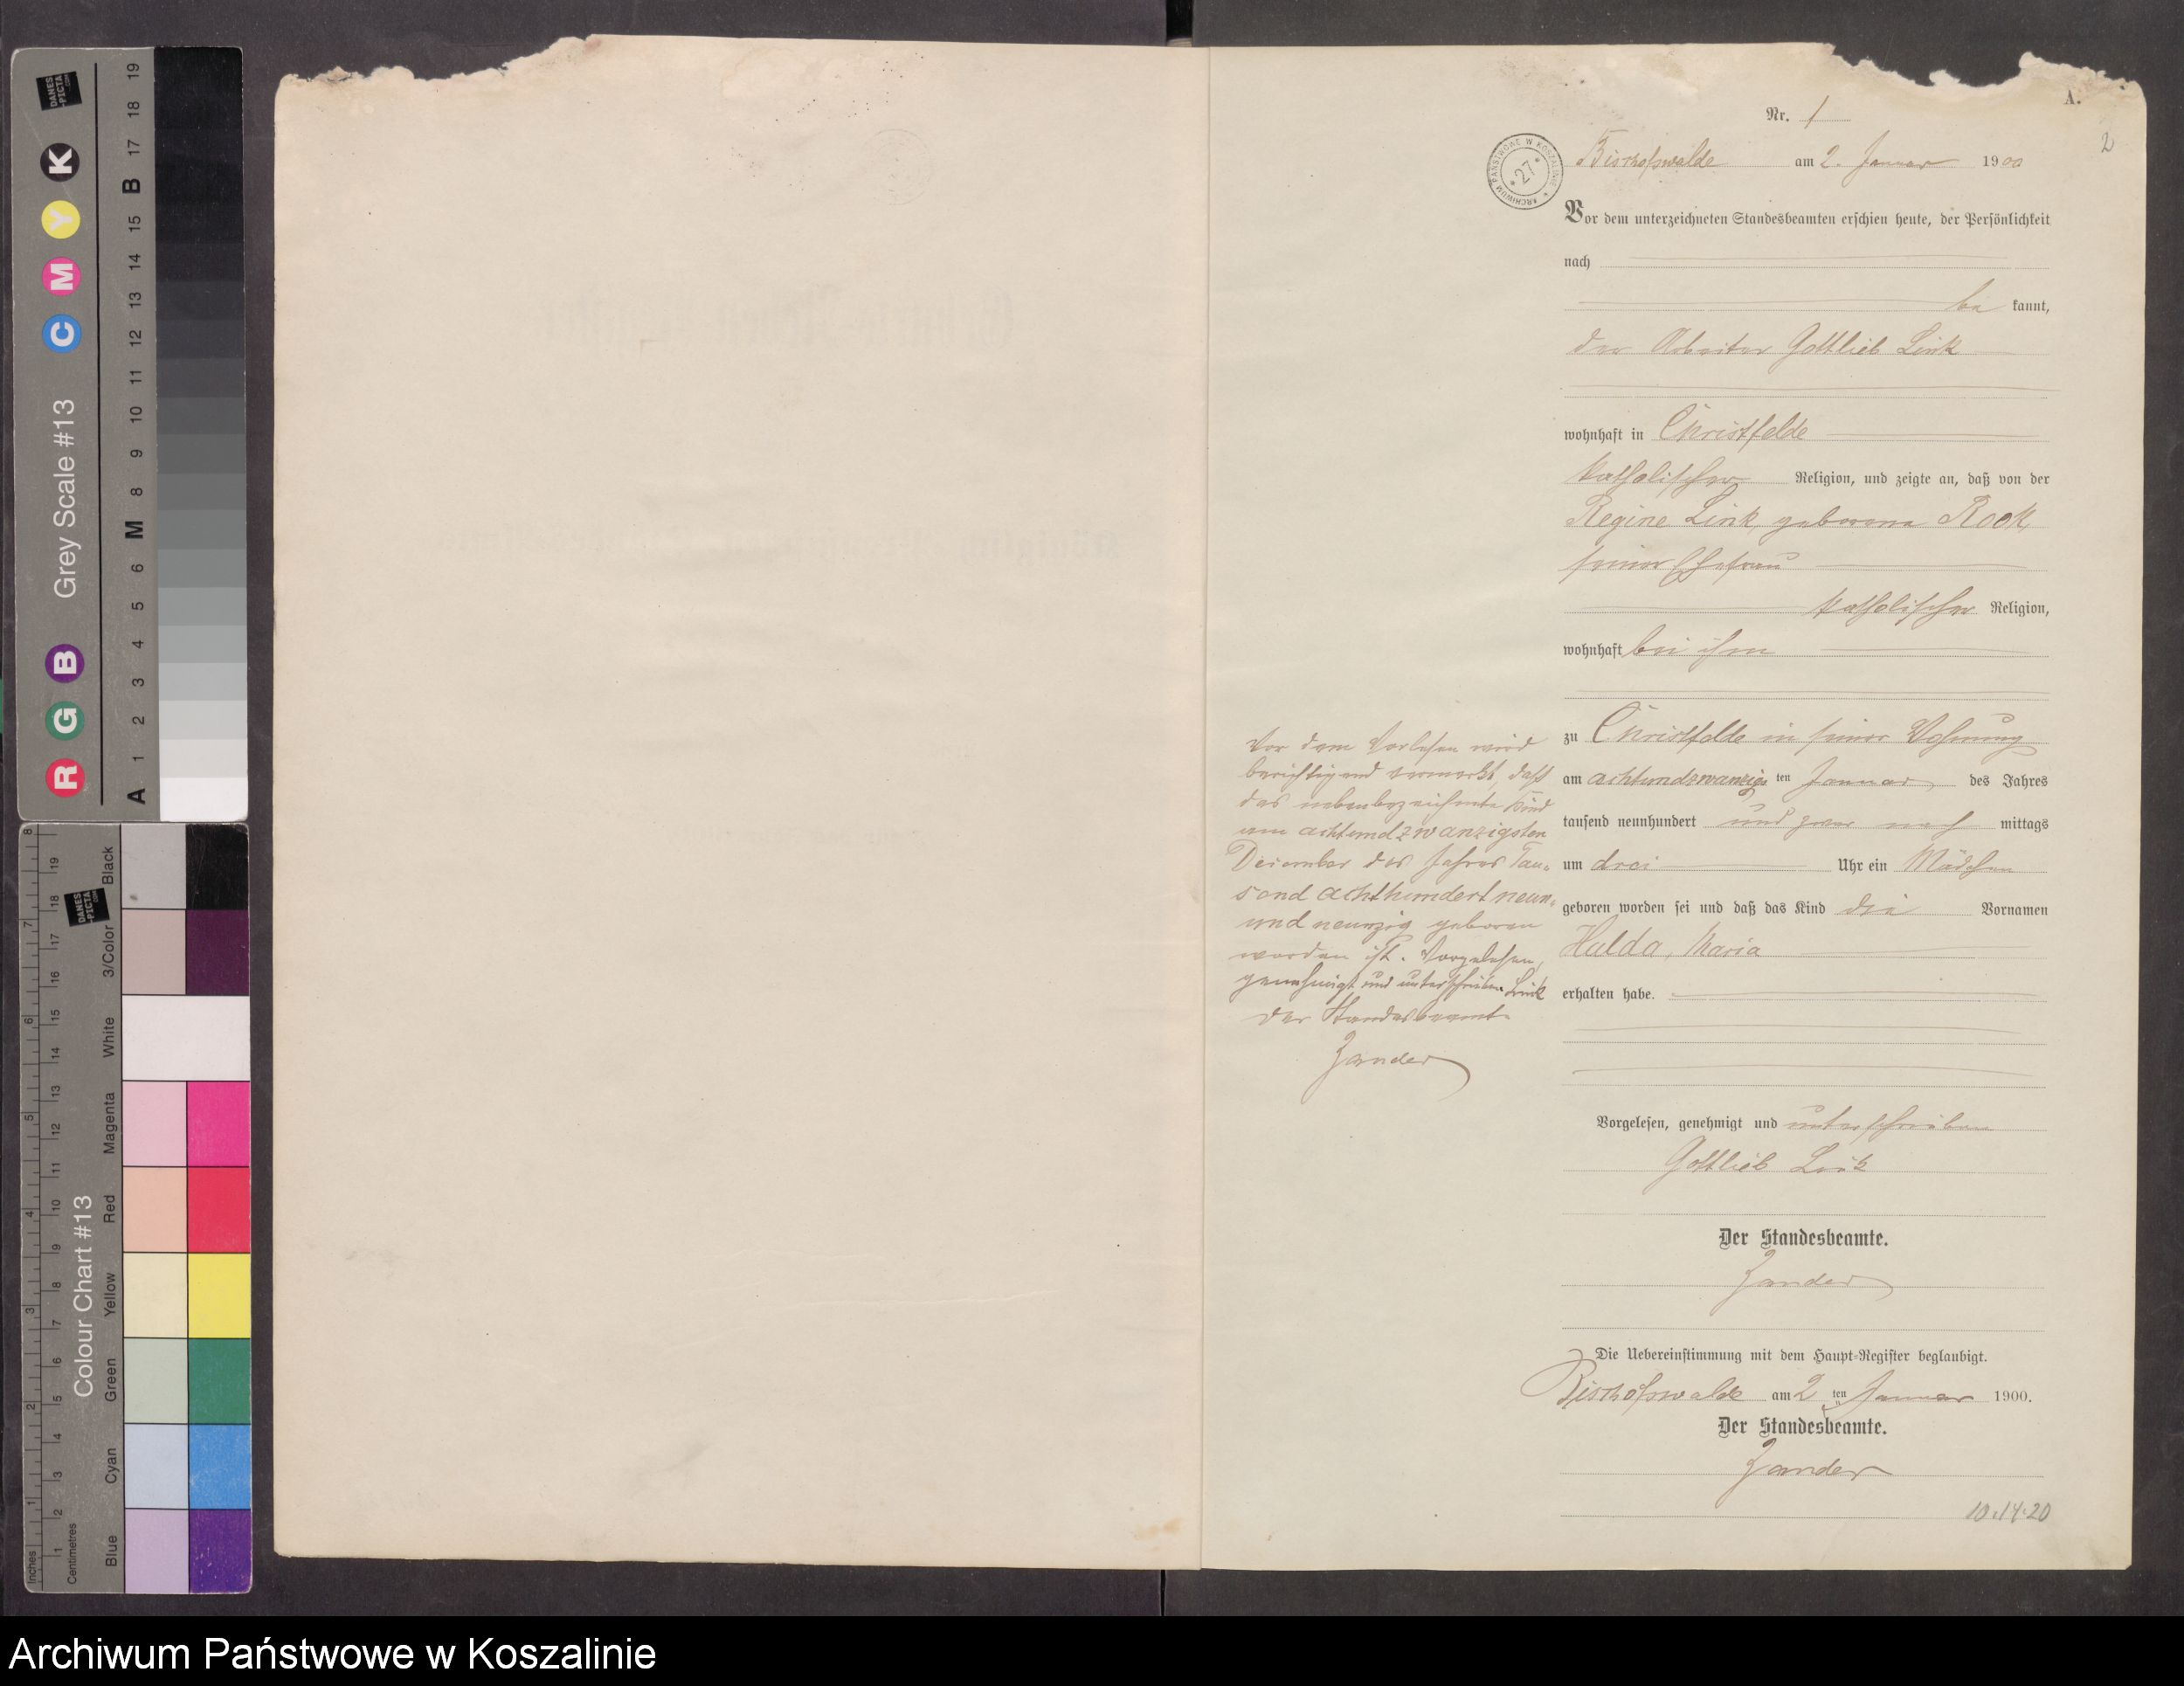 A.
Nr. 1
2
Bischofswalde am 2. Januar 1900
Vor dem unterzeichneten Standesbeamten erschien heute, der Persönlichkeit
nach
be kannt,
der Arbeiter Gottlieb Link
wohnhaft in Christfelde
katholischer Religion, und zeigte an, daß von der
Regine Link, geborene Rook,
seiner Ehefrau
katholischer Religion,
wohnhaft bei ihm
zu Christfelde in seiner Wohnung
am achtundzwanzigs ten Januar des Jahres
tausend neunhundert und zwar nach mittags
um drei Uhr ein Mädchen
geboren worden sei und daß das Kind die Vornamen
Hulda, Maria
erhalten habe.
Vor dem Vorlesen wird
berichtigend vermerkt, daß
das nebenbezeichnete Kind
am achtundzwanzigsten
Dezember des Jahres Tau-
send achthundert neun-
und neunzig geboren
worden ist. Vorgelesen,
genehmigt und unterschrieben Link
Der Standesbeamte
Zander
Vorgelesen, genehmigt und unterschrieben
Gottlieb Link
Der Standesbeamte.
Zander
Die Uebereinstimmung mit dem Haupt-Register beglaubigt.
Bischofswalde am 2 ten Januar 1900.
Der Standesbeamte.
Zander
10.14.20
ARCHIWUM PAŃSTWOWE W KOSZALINIE
* 27 *
DANES-PICTA.COM
Grey Scale #13
R G B C M Y K
A 1 2 3 4 5 6 M 8 9 10 11 12 13 14 15 B 17 18 19
DANES-PICTA.COM
Colour Chart #13
Blue Cyan Green Yellow Red Magenta White 3/Color Black
Inches 1 2 3 4 5 6 7 8
Centimetres 1 2 3 4 5 6 7 8 9 10 11 12 13 14 15 16 17 18 19
Archiwum Państwowe w Koszalinie